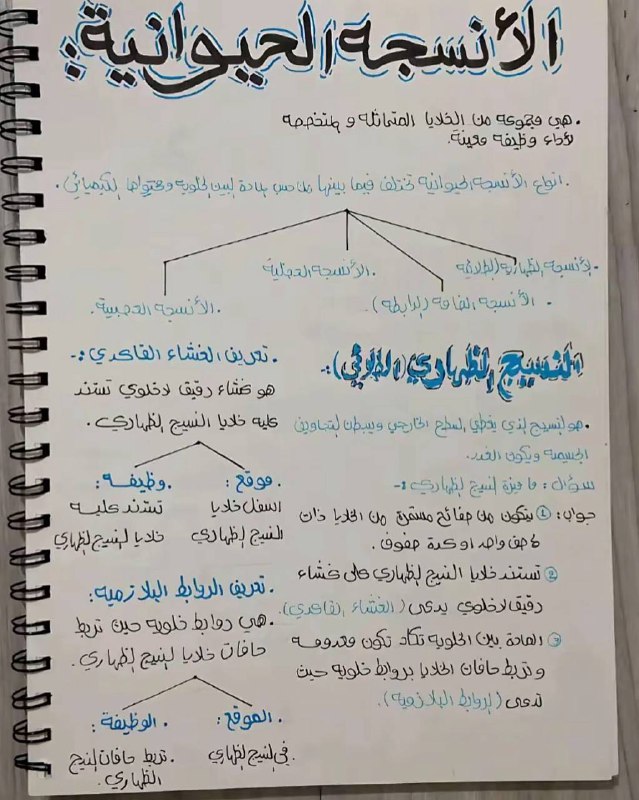 الأنسجه الحيوانية:
. هي مجموعه من الخلايا المتماثله و متخصصه
لأداء وظيفه معينة.
. انواع الأنسجه الحيوانيه تختلف فيما بينها من حيث المادة البين الخلويه ومحتواها الكيميائي.
. الأنسجه الظهاريه الطلائيه
. الأنسجه العضليه
. الأنسجه الضامه (الرابطه)
. الأنسجه العصبيه.
النسيج الظهاري (الطلائي):-
. هو النسيج الذي يغطي السطح الخارجي ويبطن التجاويف
الجسميه ويكون الغدد.
سؤال: ما ميزة النسيج الظهاري:-
جواب: ① يتكون من صفائح مستمرة من الخلايا ذات
صف واحد او عدة صفوف.
② تستند خلايا النسيج الظهاري على غشاء
دقيق لاخلوي يدعى (الغشاء القاعدي).
③ المادة بين الخلويه تكاد تكون معدومه
و تربط حافات الخلايا بروابط خلويه حيث
تدعى (الروابط البلازميه).
. تعريف الغشاء القاعدي:-
هو غشاء دقيق لاخلوي تستند
عليه خلايا النسيج الظهاري.
. موقع:
اسفل خلايا
النسيج الظهاري
. وظيفه:
تستند عليه
خلايا النسيج الظهاري
. تعريف الروابط البلازميه:
. هي روابط خلويه حين تربط
حافات خلايا النسيج الظهاري.
. الموقع:
في النسيج الظهاري.
. الوظيفة:
. تربط حافات النسيج
الظهاري.